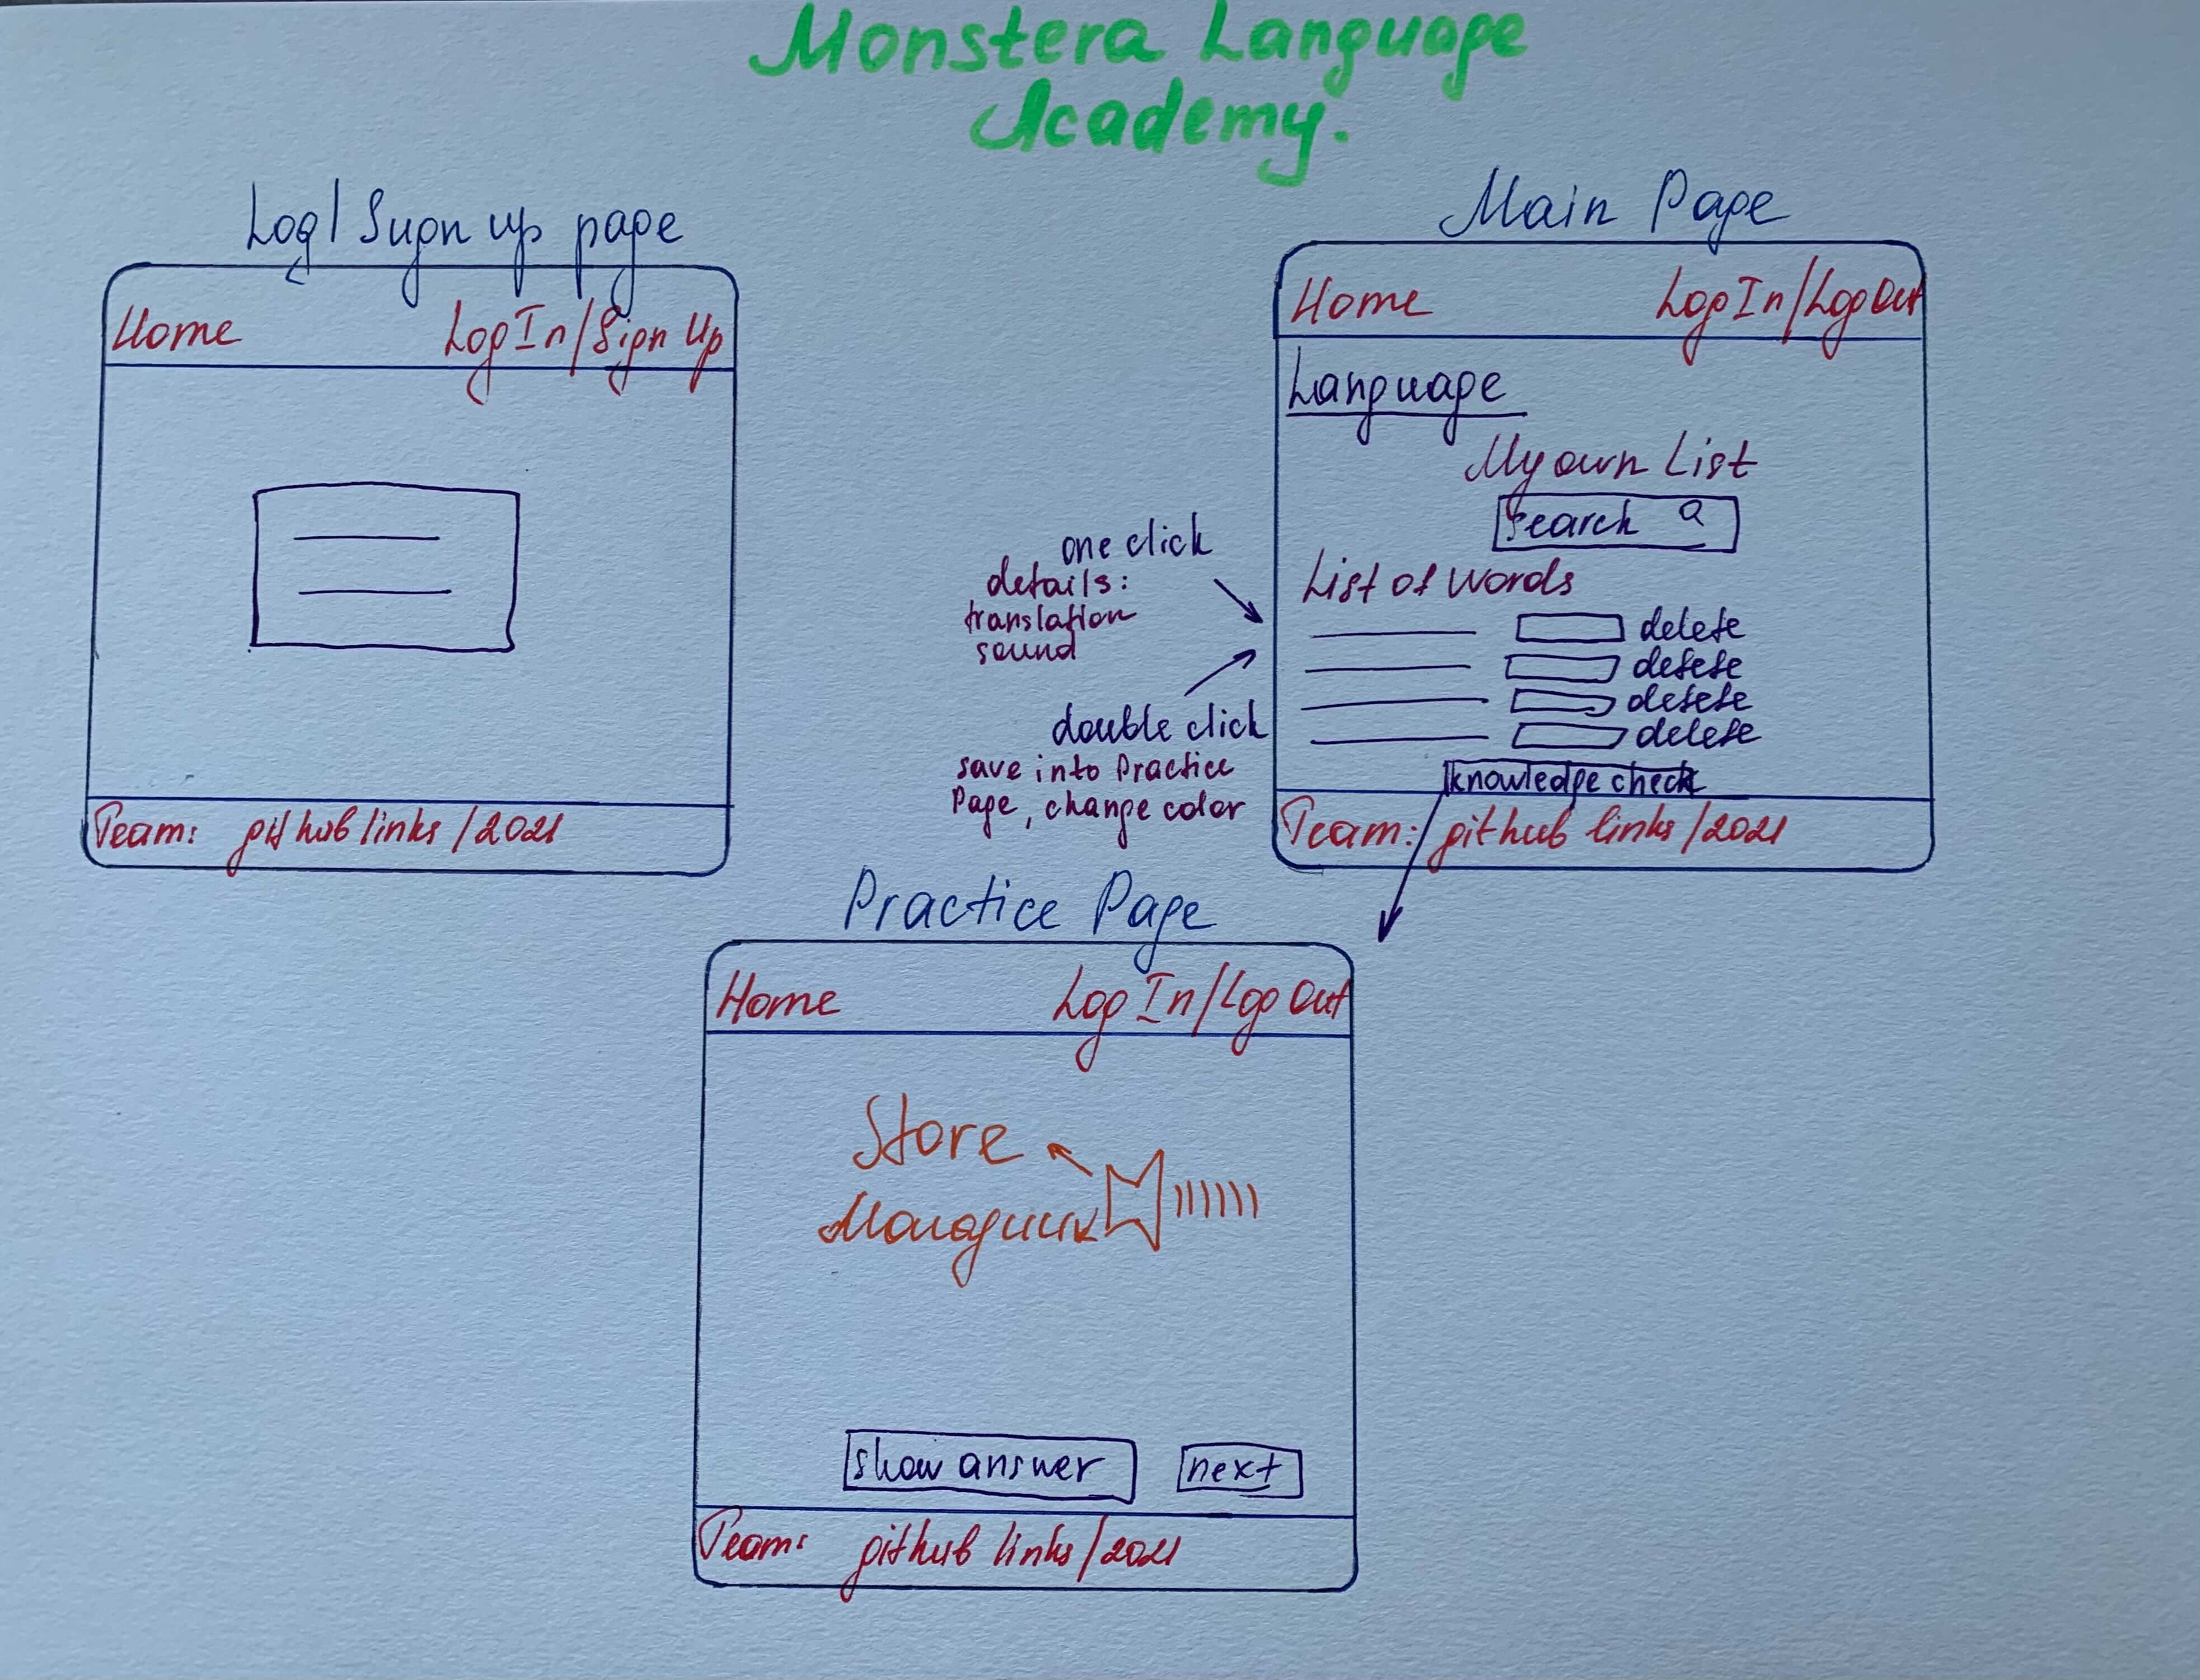 Monstera Language
Academy.
Log/Sign up page
Home LogIn/Sign Up
Team: github links/2021
Main Page
Home LogIn/LogOut
Language
My own List
search
List of words
delete
delete
delete
delete
knowledge check
Team: github links/2021
one click
details:
translation
sound
double click
save into Practice
Page, change color
Practice Page
Home Log In/Log Out
Store
show answer next
Team: github links/2021